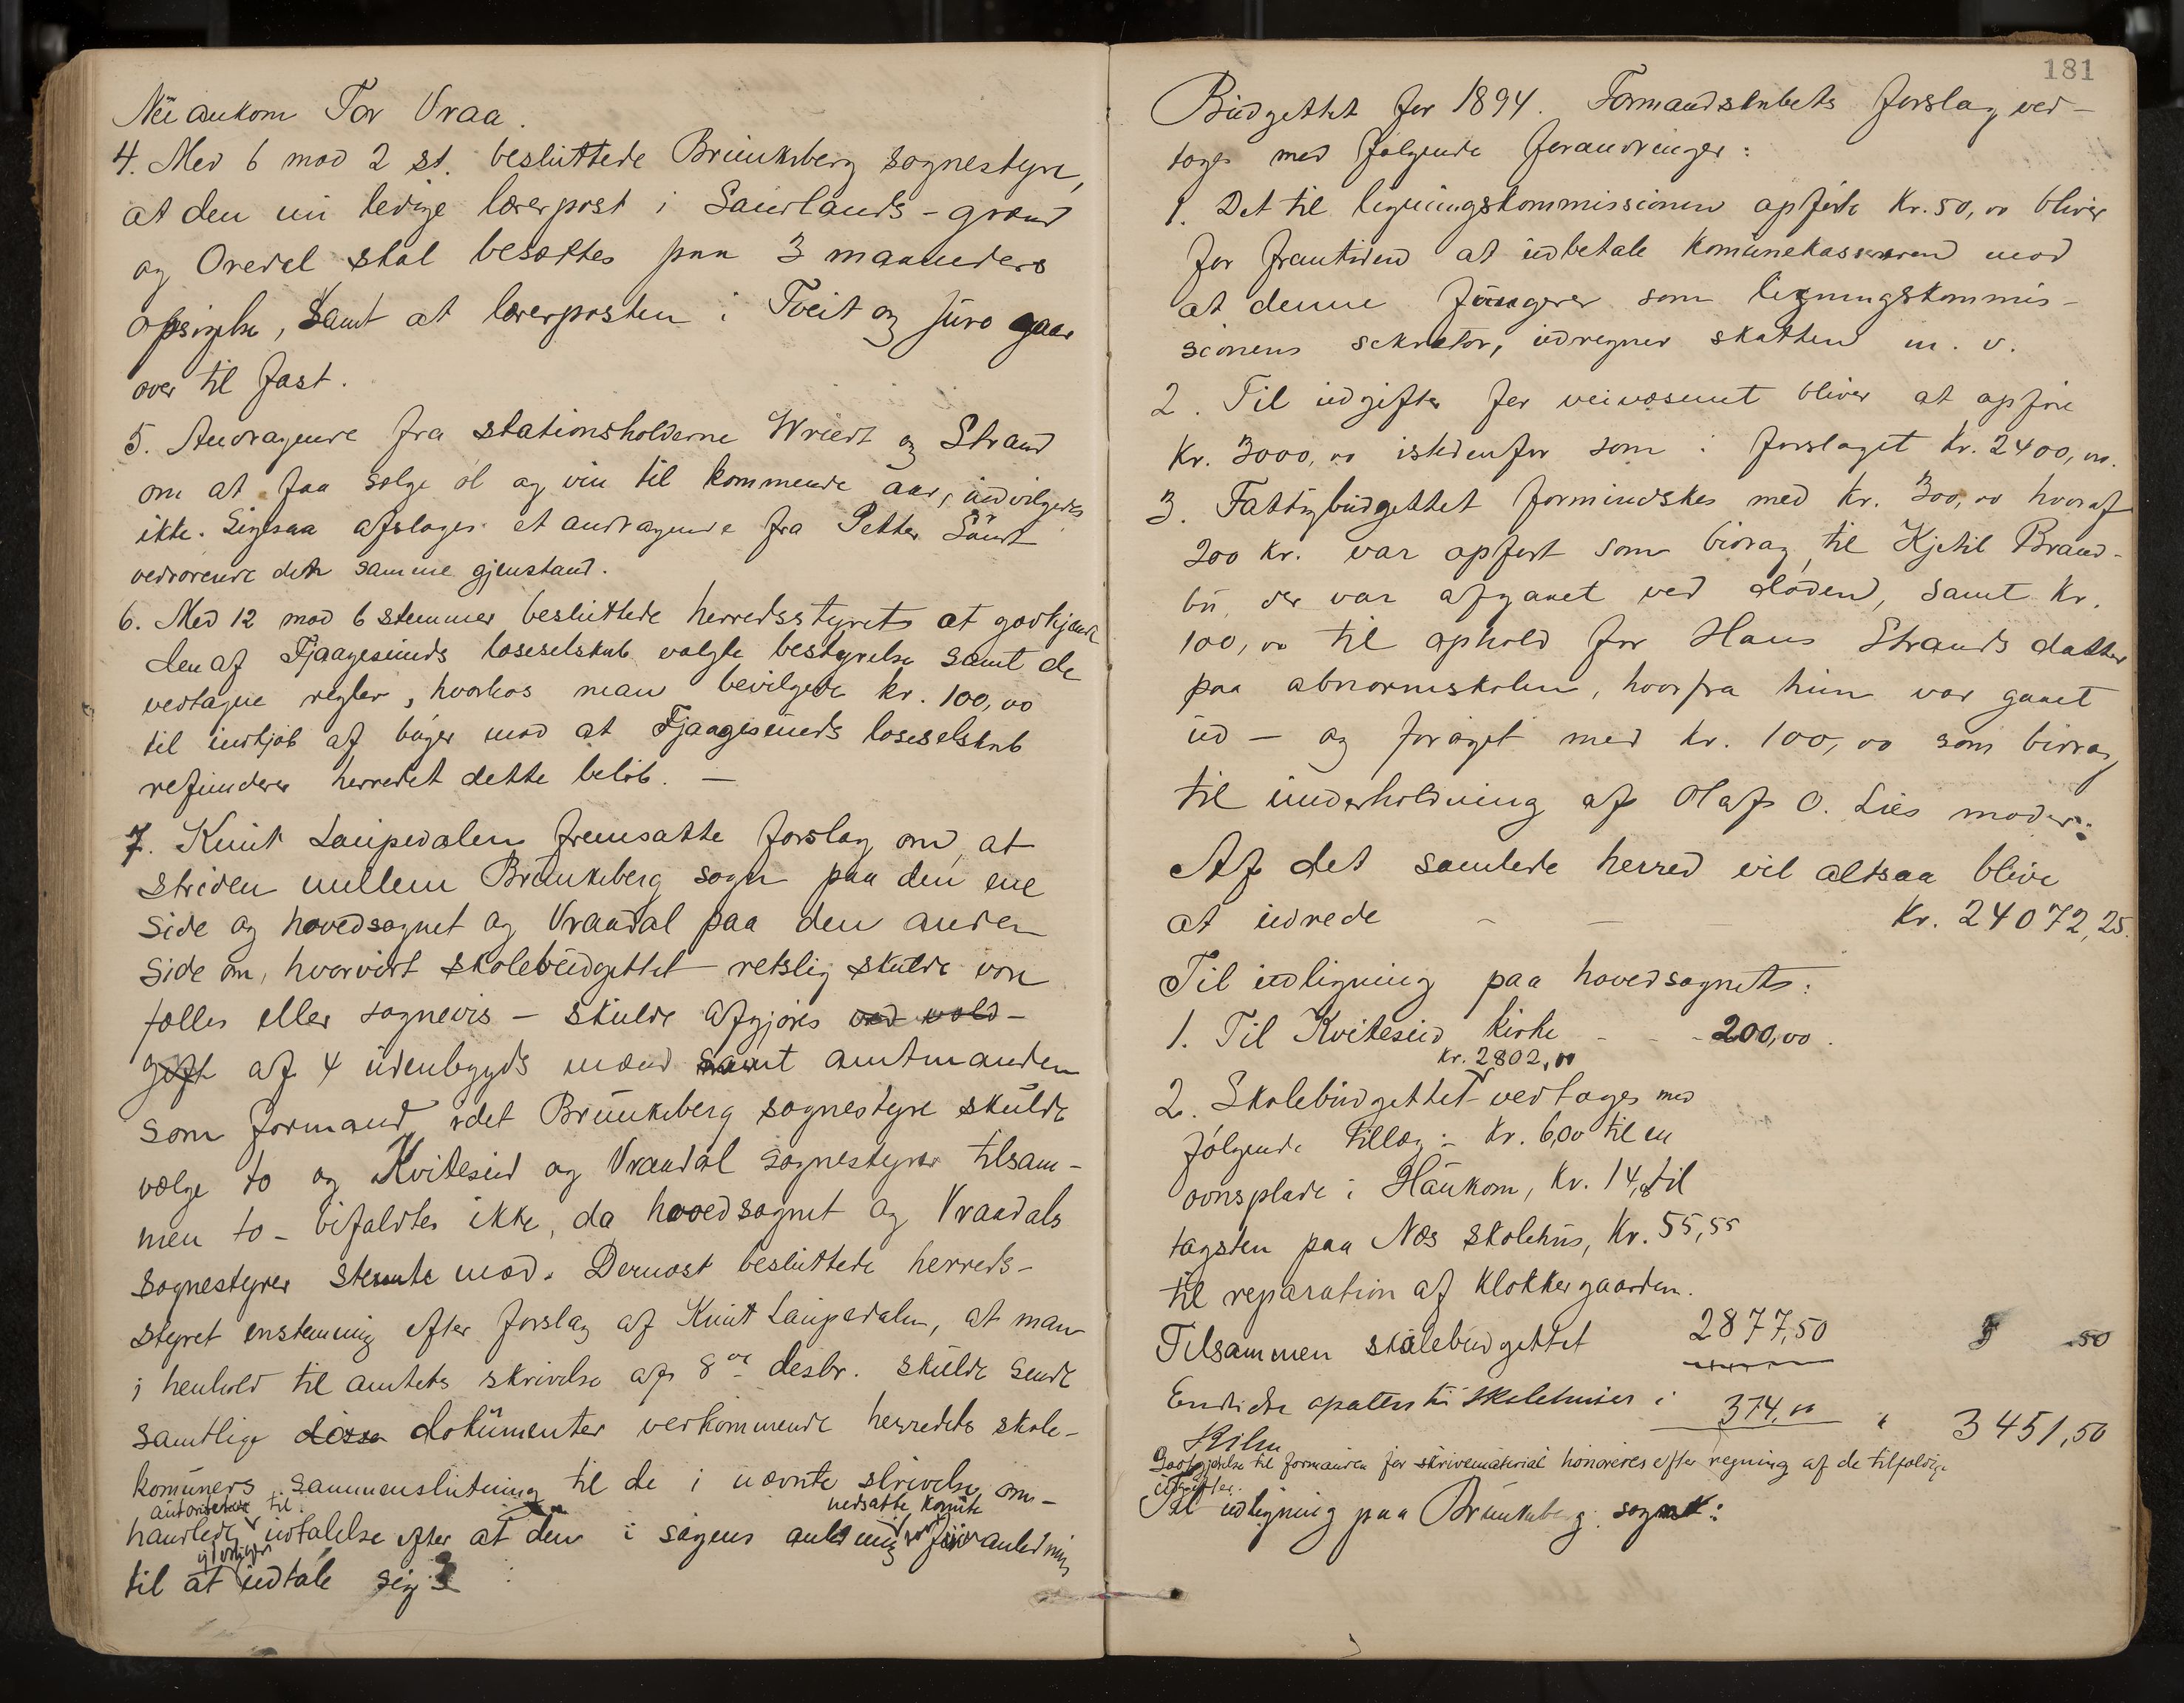 Nu ankom Tor Vraa.
4. Med 6 mod 2 st. besluttede Brunkeberg sognestyre,
at den nu ledige lærerpost i Saurlands-grænd
og Oredal skal besættes paa 3 maaneders
opsigelse, samt at lærerposten i Tveit og Juro gaar
over til fast.
5. Andragende fra stationsholderne Wriedt og Strand
om at faa sælge öl og vin til kommende aar, indvilgedes
ikke. Ligesaa afsloges et andragende fra Petter
vedrørende den samme gjenstand.
6. Med 12 mod 6 stemmer besluttede herredsstyret at godkjende
den af Fjaagesunds læseselskab valgte bestyrelse samt de
vedtagne regler, hvorhos man bevilgede kr. 100,00
til indkjøb af bøger mod at Fjaagesunds læseselskab
refunderer herredet dette beløb. —
7. Knut Laupedalen fremsatte forslag om at
striden mellem Brunkeberg sogn paa den ene
side og hovedsognet og Vraadal paa den anden
side om, hvorvidt skolebudgettet retslig skulde være
fælles eller sognevis — skulde afgjøres ved vold-
gift af 4 udenbygds mænd samt amtmanden
som formand, idet Brunkeberg sognestyre skulde
vælge to og Kviteseid og Vraadal sognestyrer tilsam-
men to — bifaldtes ikke, da hovedsognet og Vraadals
sognestyrer stemte mod. Dernæst besluttede herreds-
styret enstemmig efter forslag af Knut Laupedalen, at man
i henhold til amtets skrivelse af 8de desbr. skulde sende
samtlige disse dokumenter vedkommende herredets skole-
komuners sammenslutning til de i nævnte skrivelse om-
autoriserede til nedsatte komite
handlede udtalelse efter at den i sagens anledning har anledning
yderligere
til at udtale sig
181
Budgettet for 1894. Formandskabets forslag ved-
toges med følgende forandringer:
1. Det til ligningskommissionen opførte kr. 50,00 bliver
for fremtiden at udbetale komunekassereren mod
at denne fungerer som ligningskommis-
sionens sekretær, udregner skatten m. v.
2. Til udgifter for veivæsenet bliver at opføre
kr. 3000,00 istedenfor som i forslaget kr. 2400,00.
3. Fattigbudgettet formindskes med kr. 300,00 hvoraf
200 kr. var opført som bidrag til Kjetil Brand-
bu, der var afgaaet ved døden, samt kr.
100,00 til ophold for Hans Strands datter
paa abnormskolen, hvorfra hun var gaaet
ud — og forøget med kr. 100,00 som bidrag
til underholdning af Olaf O. Lies moder:
Af det samlede herred vil altsaa blive
at udrede - — - Kr. 24072,25.
Til udligning paa hovedsognet:
1. Til Kviteseid kirke - - - 200,00.
kr. 2802,00
2. Skolebudgettet vedtages med
følgende tillæg: kr. 6,00 til en
ovnsplade i Haukom, kr. 14,00 til
tagsten paa Næs skolehus, kr. 55,55
til reparation af klokkergaarden.
Tilsammen skolebudgettet 2877,50 50
Endvidere til skolehuset i 374,00 " 3451,50
Godtgjørelse til formanden for skrivemateriel honoreres efter regning af de tilfældige
udgifter.
Til udligning paa Brunkeberg sognet: